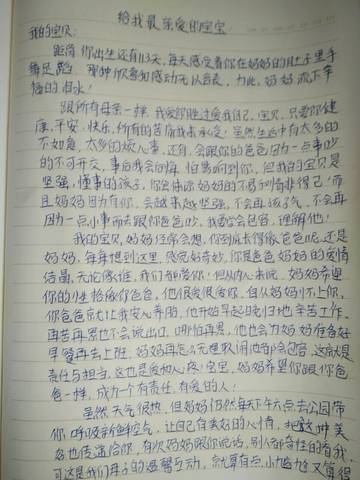 给我最亲爱的宝宝
我的宝贝:
距离你出生还有113天,每天感受着你在妈妈的肚子里手
舞足蹈,那种欣喜和感动无以言表,为此,妈妈流下幸
福的泪水!
跟所有母亲一样,我爱你胜过爱我自己,宝贝,只愿你健
康,平安,快乐,所有的苦痛我来承受!虽然生活中有太多的
不如意,太多的烦人事,还有,会跟你的爸爸因为一点事吵
的不可开交,事后我会后悔,怕影响到你,但我的宝贝是
坚强,懂事的孩子,你会体谅妈妈的不易和情非得已!而
且妈妈因为有你,会越来越坚强,不会再孩子气,不会再
因为一点小事而去跟你爸爸吵,我要学会包容,理解他!
我的宝贝,妈妈经常会想,你到底长得像爸爸呢,还是
妈妈,每每想到这里,感觉好奇妙,你是爸爸妈妈的爱情
结晶,无论像谁,我们都爱你!但从内心来说,妈妈希望
你的性格像你爸爸,他很爱很爱你,自从妈妈怀上你,
你爸爸就让我安心养胎,他开始早起晚归地辛苦工作,
再苦再累也不会说出口,哪怕再累,他也会为妈妈准备好
早餐再去上班,妈妈再怎么无理取闹他都会包容,这就是
责任与担当,这也是爱和人,疼宝宝,妈妈希望你跟你爸
爸一样,成为一个有责任,有爱的人!
虽然天气很热,但妈妈仍然每天下午六点去公园带
你呼吸新鲜空气,让自己有美好的心情,把这种美
好也传递给你,有次妈妈跟你说话,别人都奇怪的看我,
可这是我们母子的温馨互动,就算有点小尴尬又算得